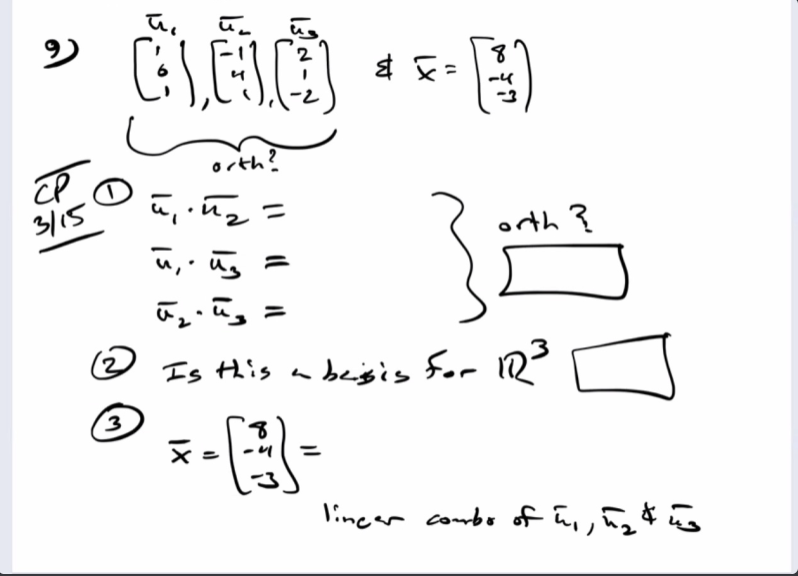 9) ū₁ ū₂ ū₃
[1 0 1], [-1 4 1], [2 1 -2] & x̄ = [8 -4 -3]
orth?
CP 3/15
① ū₁ · ū₂ =
ū₁ · ū₃ =
ū₂ · ū₃ =
orth?
② Is this a basis for ℝ³
③ x̄ = [8 -4 -3] =
linear combo of ū₁, ū₂ & ū₃